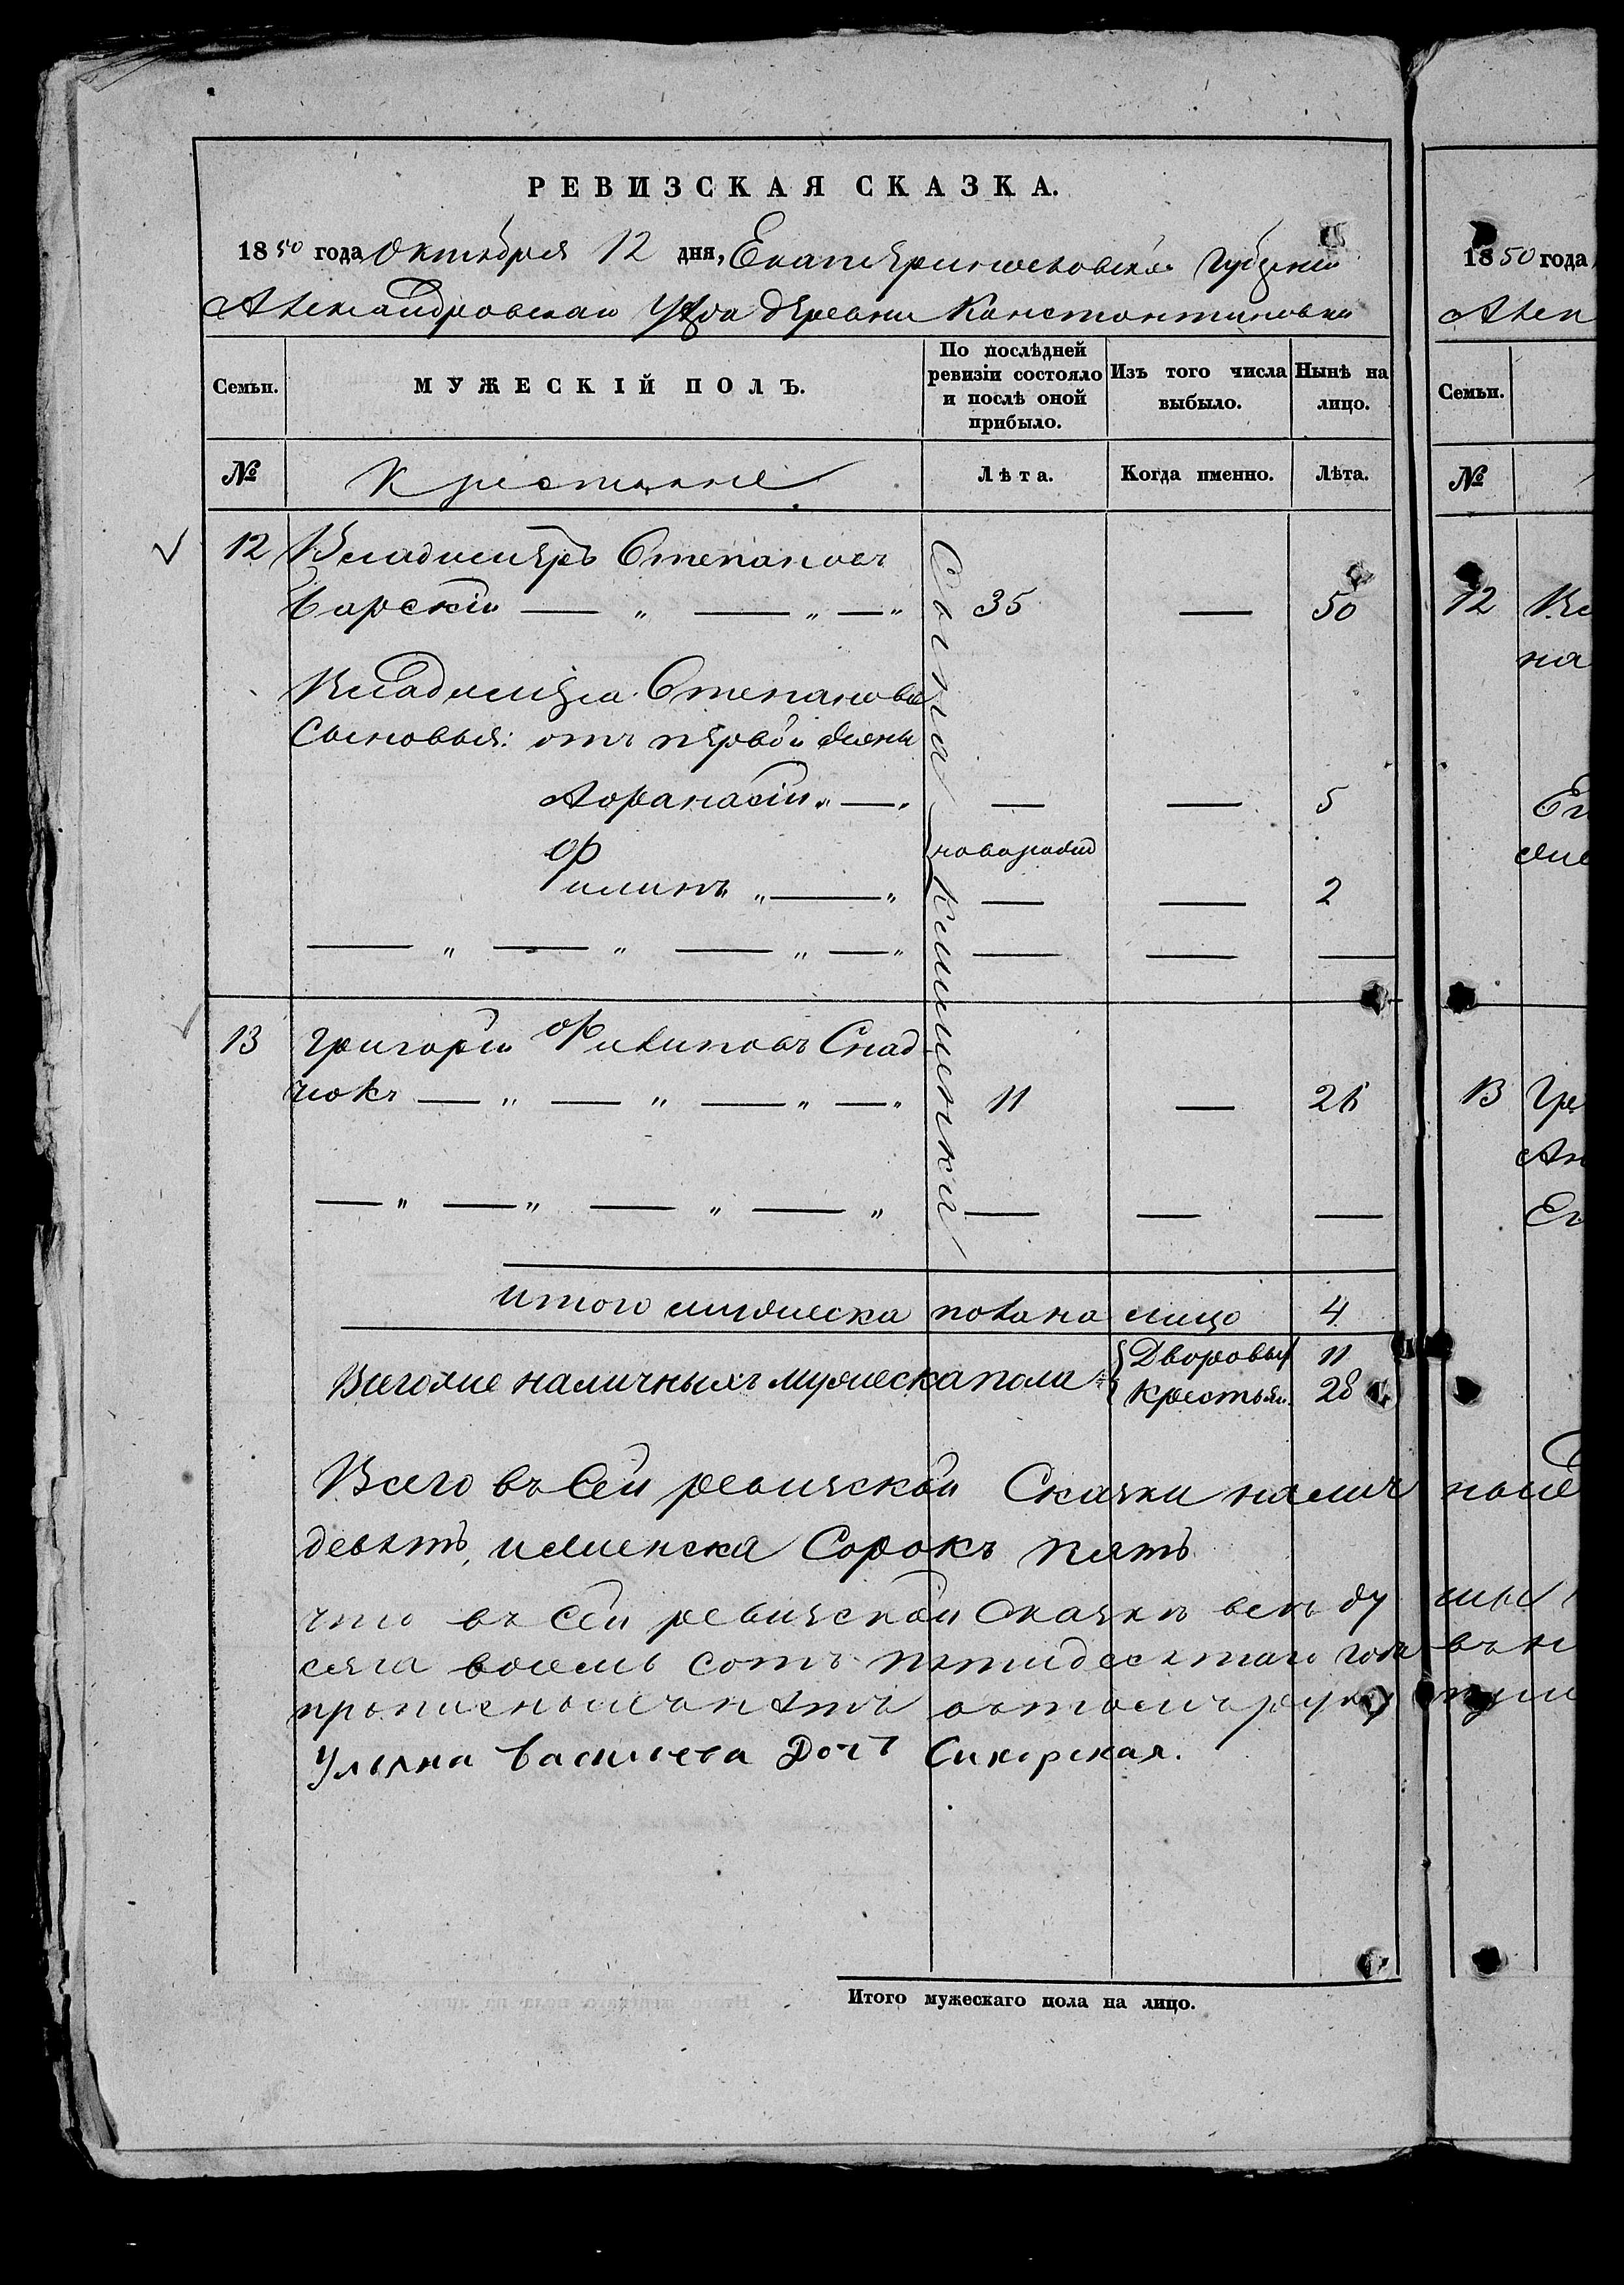 РЕВИЗСКАЯ СКАЗКА.
1850 года Октября 12 дня, Екатеринославской Губернии
Александровскаго Уезда деревни Константиновки
Семьи. МУЖЕСКІЙ ПОЛЪ. По послѣдней ревизіи состояло и послѣ оной прибыло. Изъ того числа выбыло. Нынѣ на лицо.
№ Крестьяне Лѣта. Когда именно. Лѣта.
12 Владимеръ Степановъ
Барскій — " — " — " 35 — 50
Владимера Степанова
Сыновья: отъ первой жены
Афанасій " — " — — 5
новорожд
Филипъ " — " — — 2
— " — " — " — " — — —
13 Григорій Филиповъ Снад
чокъ — " — " — " — " 11 — 26
— " — " — " — " — — —
Итого мужеска пола на лицо 4
Всегоже наличныхъ мужеска пола Дворовых 11
Крестьян. 28
Всего въ сей ревизской Сказки налич
девять, иженска Сорокъ пять
что въ сей ревизской Сказки всех ду
сяча восемь сотъ пятидесятаго года
Ульяна Васильева Дочь Сикорская.
Итого мужескаго пола на лицо.
1850 года
Алек
Семьи.
№
12 Вл
на
Ег
же
13 Гри
Ан
Ег
ные